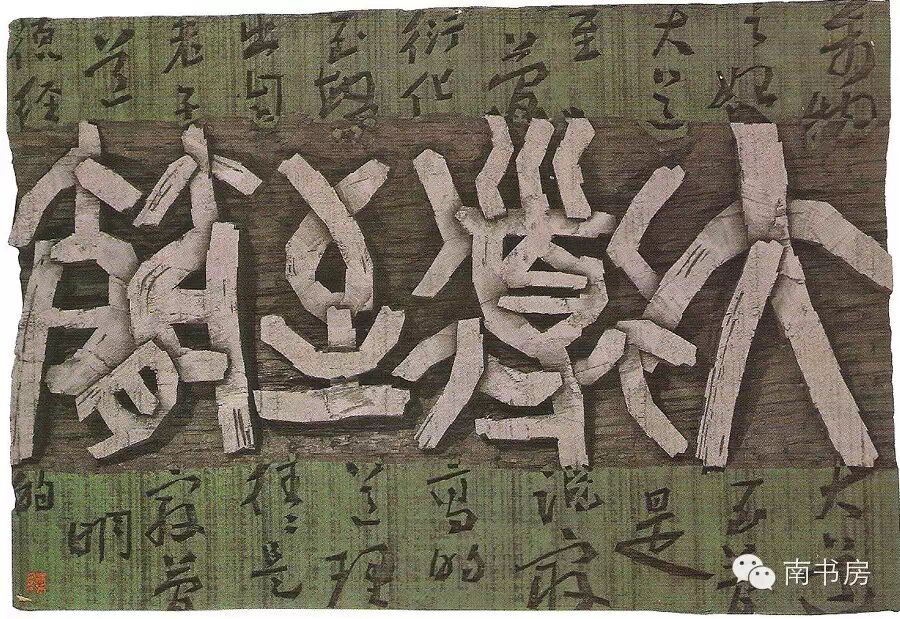 萬物
之始
大道
至
简
衍化
至繁
出自
老子
道
德经
大道至簡
大道
至简
是
说最
高的
道理
往往是
最简
明
的
南书房